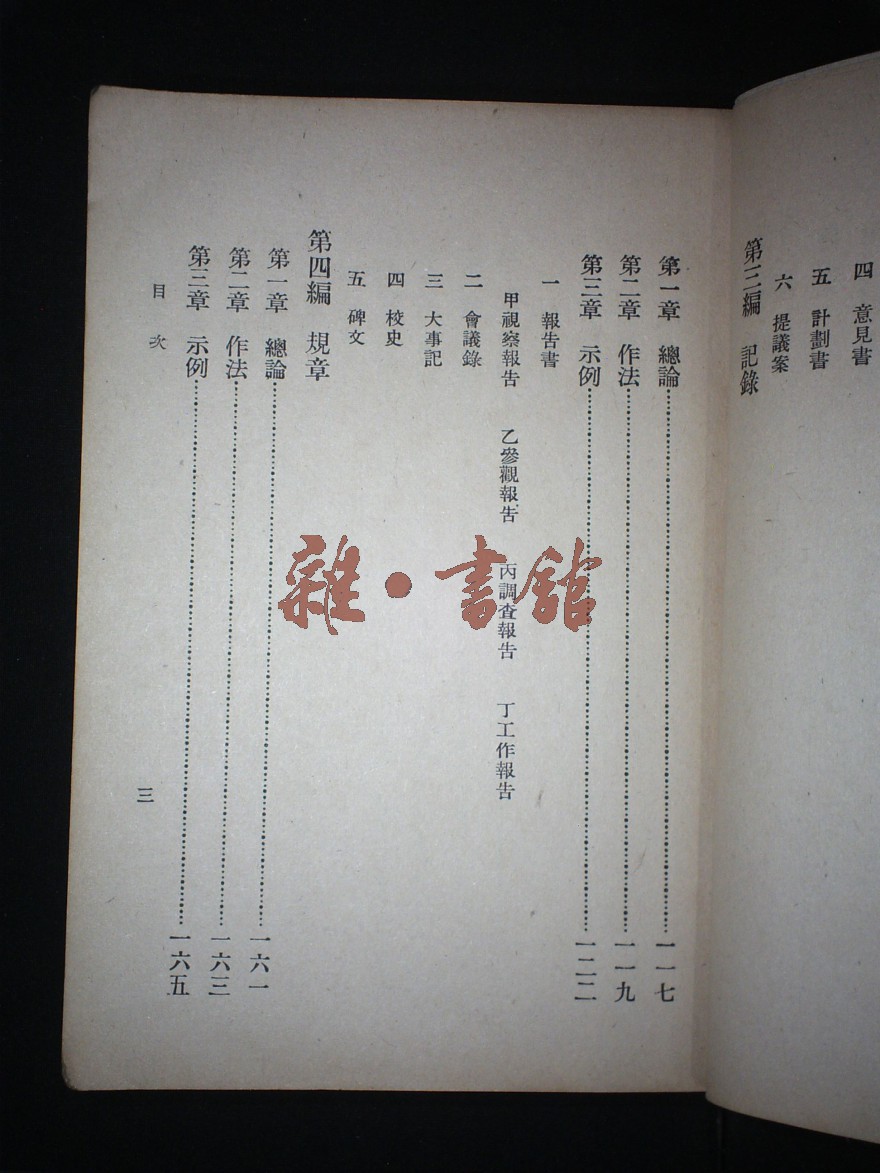 四 意見書
五 計劃書
六 提議案
第三編 記錄
第一章 總論……一一七
第二章 作法……一一九
第三章 示例……一二二
一 報告書
甲視察報告 乙參觀報告 丙調查報告 丁工作報告
二 會議錄
三 大事記
四 校史
五 碑文
第四編 規章
第一章 總論……一六一
第二章 作法……一六三
第三章 示例……一六五
目次
三
雜·書館